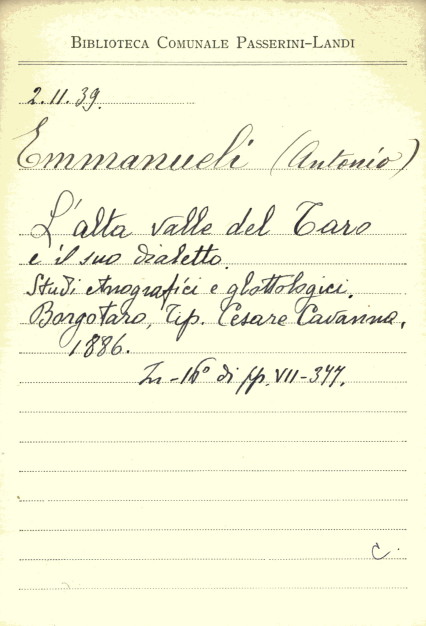 BIBLIOTECA COMUNALE PASSERINI-LANDI
2.11.39.
Emmanueli (Antonio)
L'alta valle del Taro
e il suo dialetto.
Studi etnografici e glottologici.
Borgotaro, Tip. Cesare Cavanna,
1886.
In-16° di pp. VII-377.
C.